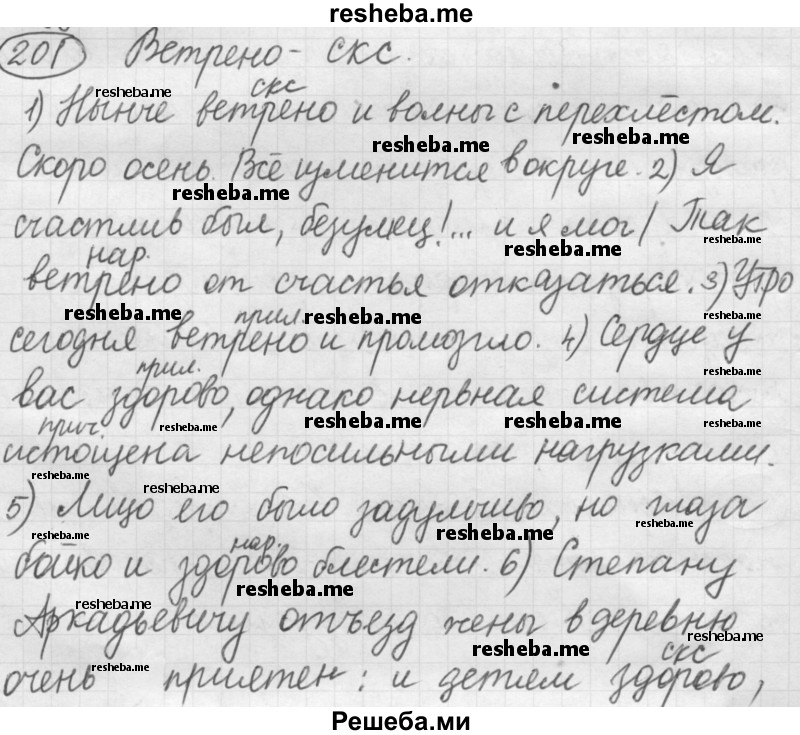 resheba.me
201 Ветрено - скс.
resheba.me скс
1) Нынче ветрено и волны с перехлёстом.
resheba.me resheba.me
Скоро осень. Всё изменится в округе. 2) Я
resheba.me
счастлив был, безумец!... и я мог / Так
нар. resheba.me resheba.me
ветрено от счастья отказаться. 3) Утро
resheba.me прил. resheba.me resheba.me
сегодня ветрено и промозгло. 4) Сердце у
прил.
вас здорово, однако нервная система
прич. resheba.me resheba.me resheba.me resheba.me
истощена непосильными нагрузками.
resheba.me resheba.me
5) Лицо его было задумчиво, но глаза
resheba.me нар. resheba.me resheba.me
бойко и здорово блестели. 6) Степану
resheba.me resheba.me
Аркадьевичу отъезд жены в деревню
resheba.me resheba.me скс resheba.me
очень приятен: и детям здорово,
Решеба.ми